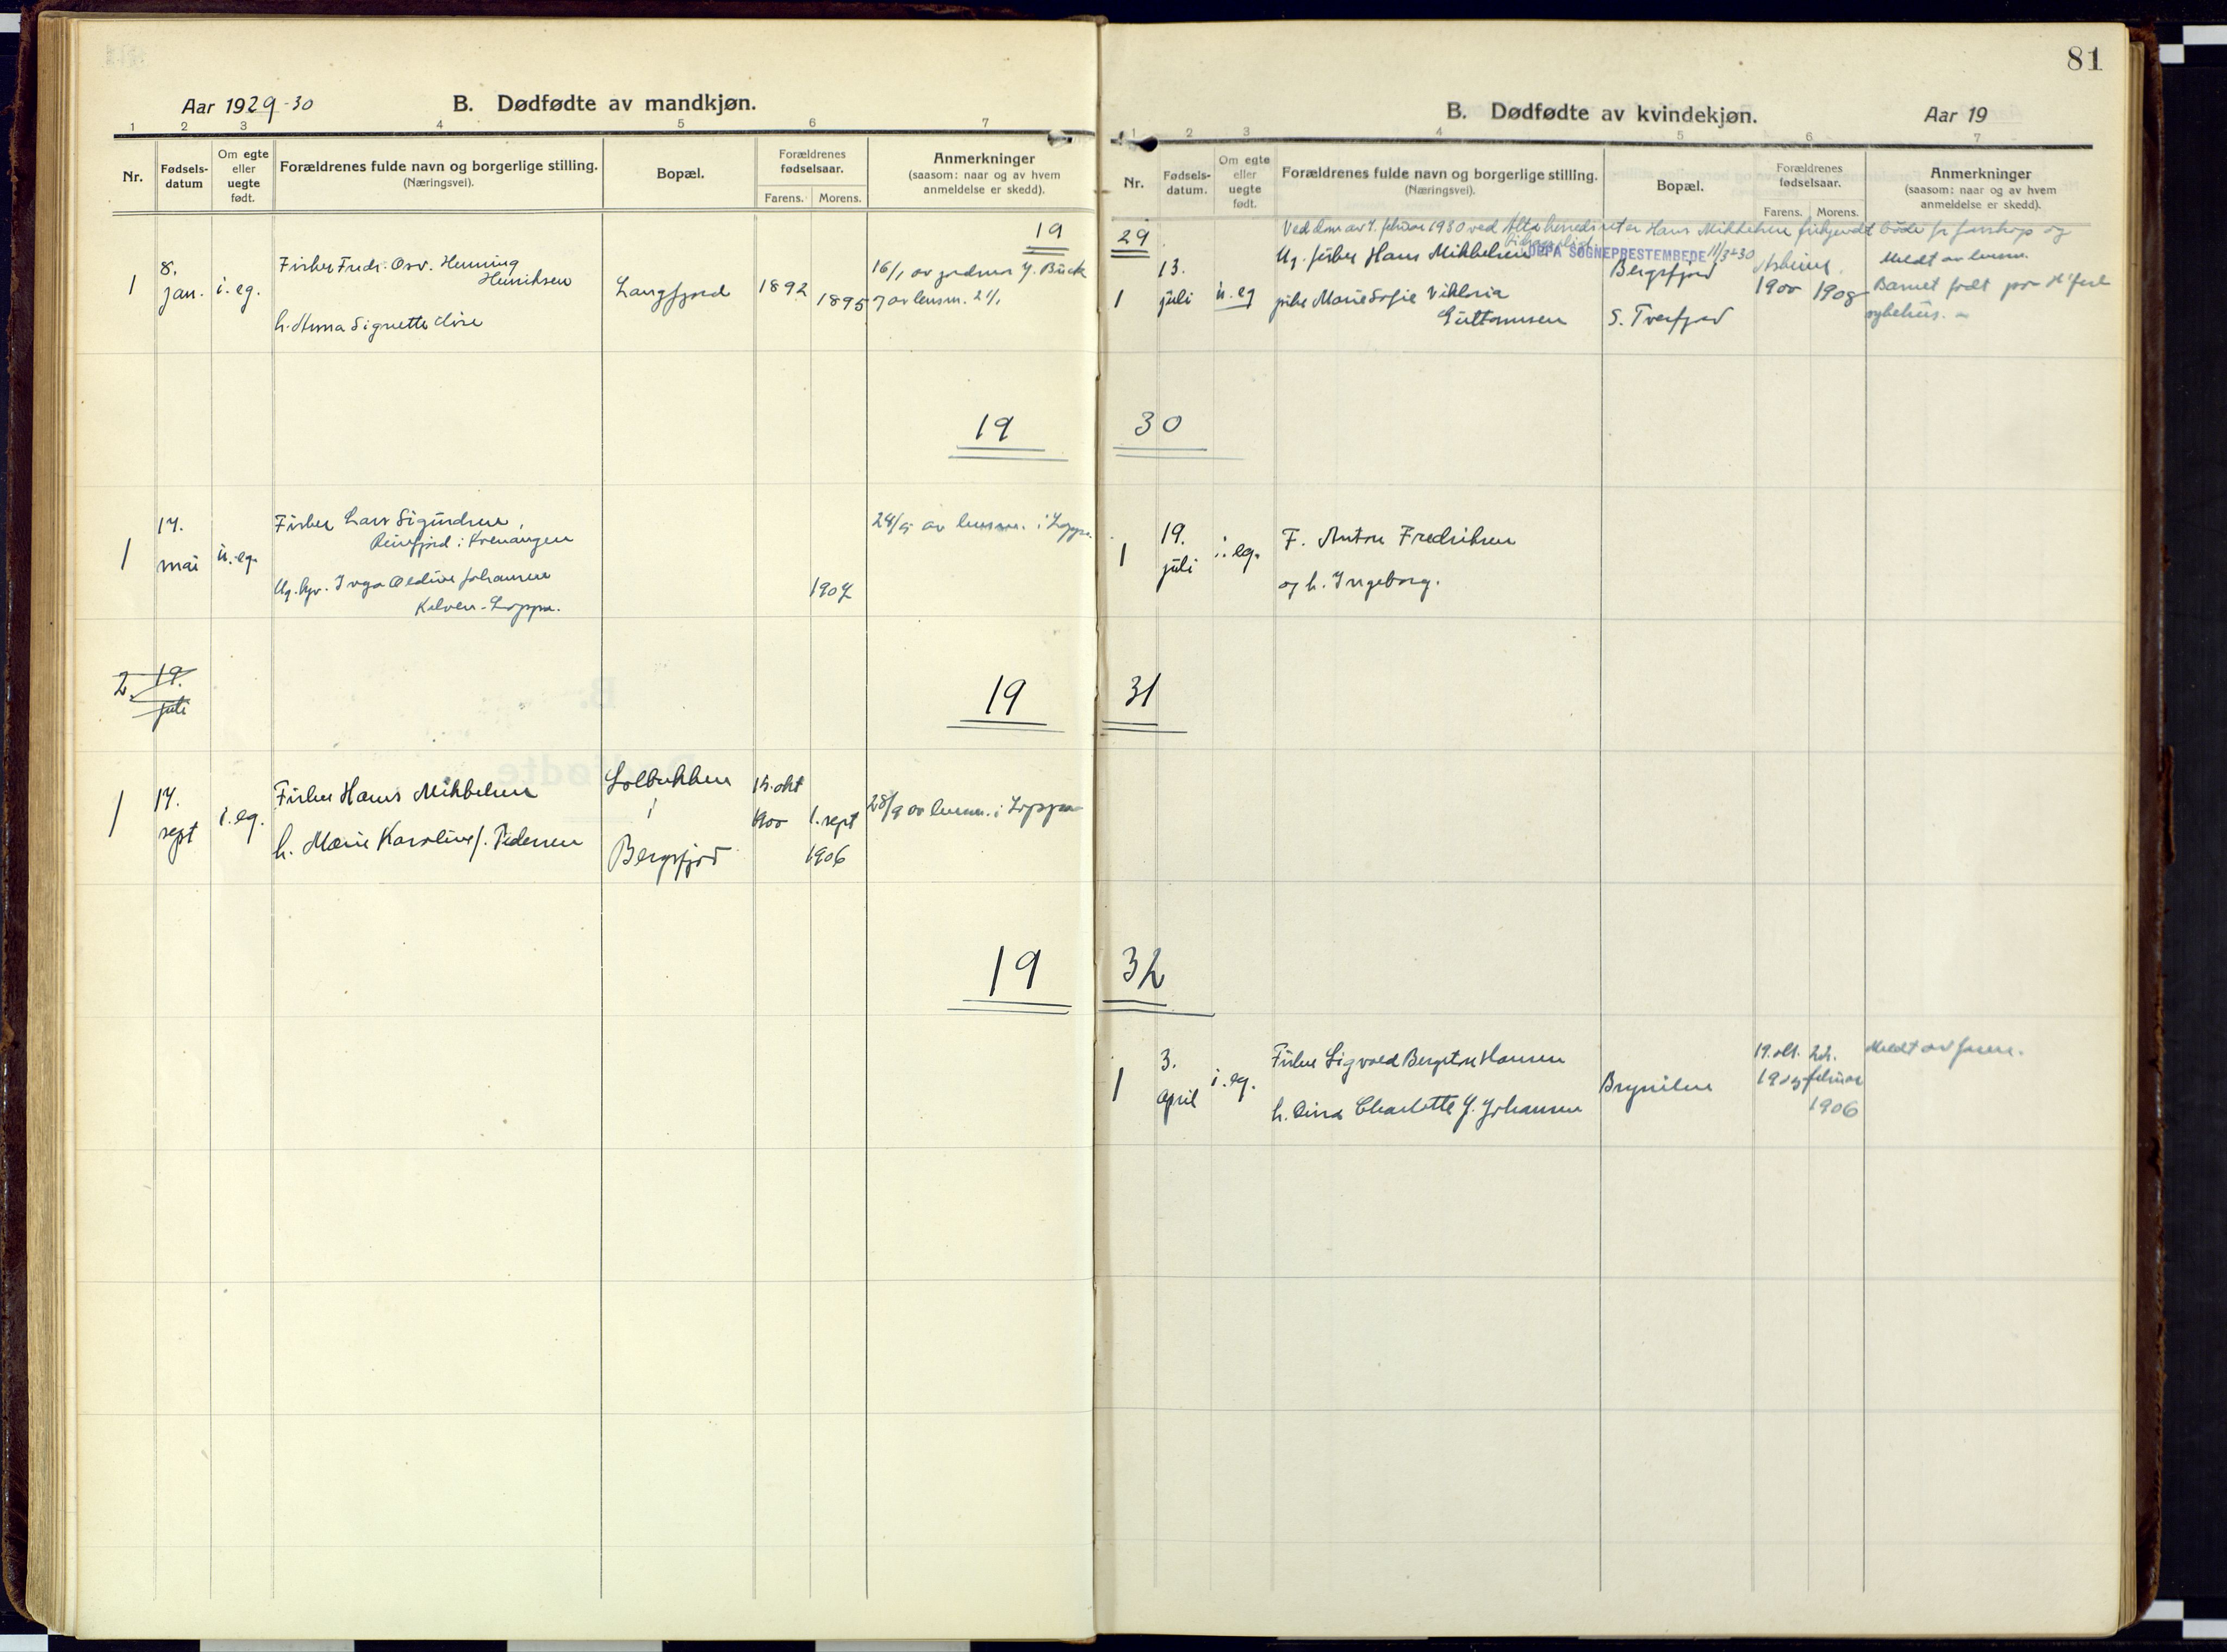 Aar 1929-30
B. Dødfødte av mandkjøn.
1 2 3 4 5 6 7
Nr.
Fødsels-
datum
Om egte
eller
uegte
født.
Forældrenes fulde navn og borgerlige stilling.
(Næringsvei).
Bopæl.
Forældrenes
fødselsaar.
Farens. Morens.
Anmerkninger
(saasom: naar og av hvem
anmeldelse er skedd).
19
1
8.
jan.
i. eg.
Fisker Fredr. Osv. Henning
Henriksen
h. Anna Signette
Langfjord
1892
1895
16/1 av jordmor J. Buck
av lensm. 21/1
19
1
17.
mai
u. eg.
Fisker Lars Sigurdsen,
Reinfjord i Kvenangen
Ug. Inga Oldine Johansen
Kilven - Loppa.
1907
24/5 av lensm. i Loppa.
2.
19.
juli
19
1
17.
sept
i. eg.
Fisker Hans Mikkelsen
h. Marie Karoline f. Pedersen
Solbakken
i
Bergsfjord
15. okt
1900
1. sept
1906
28/9 av lensm. i Loppa
19
81
B. Dødfødte av kvindekjøn.
Aar 19
1 2 3 4 5 6 7
Nr.
Fødsels-
datum.
Om egte
eller
uegte
født.
Forældrenes fulde navn og borgerlige stilling.
(Næringsvei).
Bopæl.
Forældrenes
fødselsaar.
Farens. Morens.
Anmerkninger
(saasom: naar og av hvem
anmeldelse er skedd).
29
Ved dom av 7. februar 1930 ved Alta herredsret er Hans Mikkelsen frikjendt både for farskap og
bidragsplikt.
LOPPA SOGNEPRESTEMBEDE 11/3-30
1
13.
juli
u. eg
Ug. fisker Hans Mikkelsen
pike Marie Sofie Viktoria
Guttormsen
Bergsfjord
S. Tverfjord
1900
1908
Meldt av lensm.
Barnet født paa H'fest
sykehus.
30
1
19.
juli
i. eg.
F. Anton Fredriksen
og h. Ingeborg.
31
32
1
3.
april
i. eg.
Fisker Sigvald Bergeton Hansen
h. Dina Charlotte f. Johansen
Brynilen
19. okt.
22.
februar
1906
Meldt av faren.